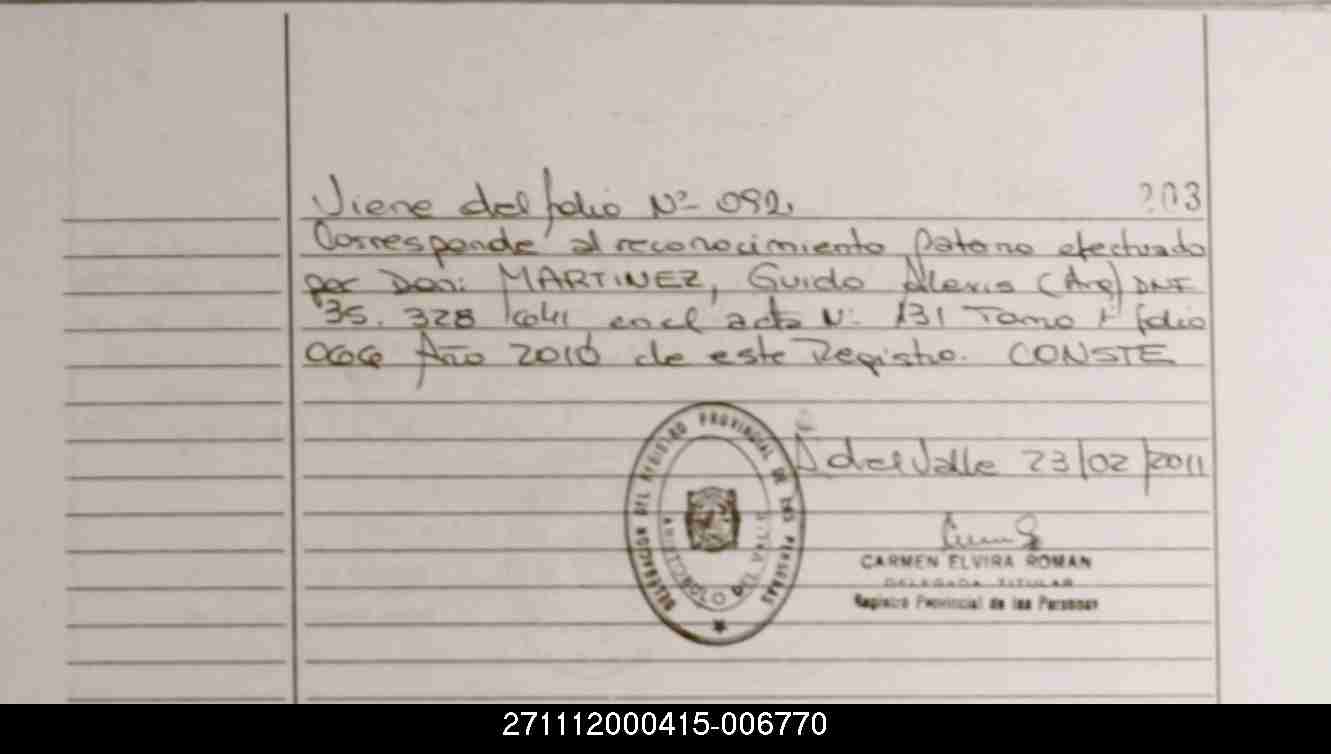 Viene del folio Nº 092. 203
Corresponde al reconocimiento paterno efectuado
por Don: MARTINEZ, Guido Alexis (Arg) DNI
35. 328 en el acta Nº 131 Tomo I folio
Año 2010 de este Registro. CONSTE
DELEGACION DEL REGISTRO PROVINCIAL DE LAS PERSONAS
DEL VALLE
del Valle 23/02/2011
CARMEN ELVIRA ROMAN
DELEGADA TITULAR
Registro Provincial de las Personas
271112000415-006770